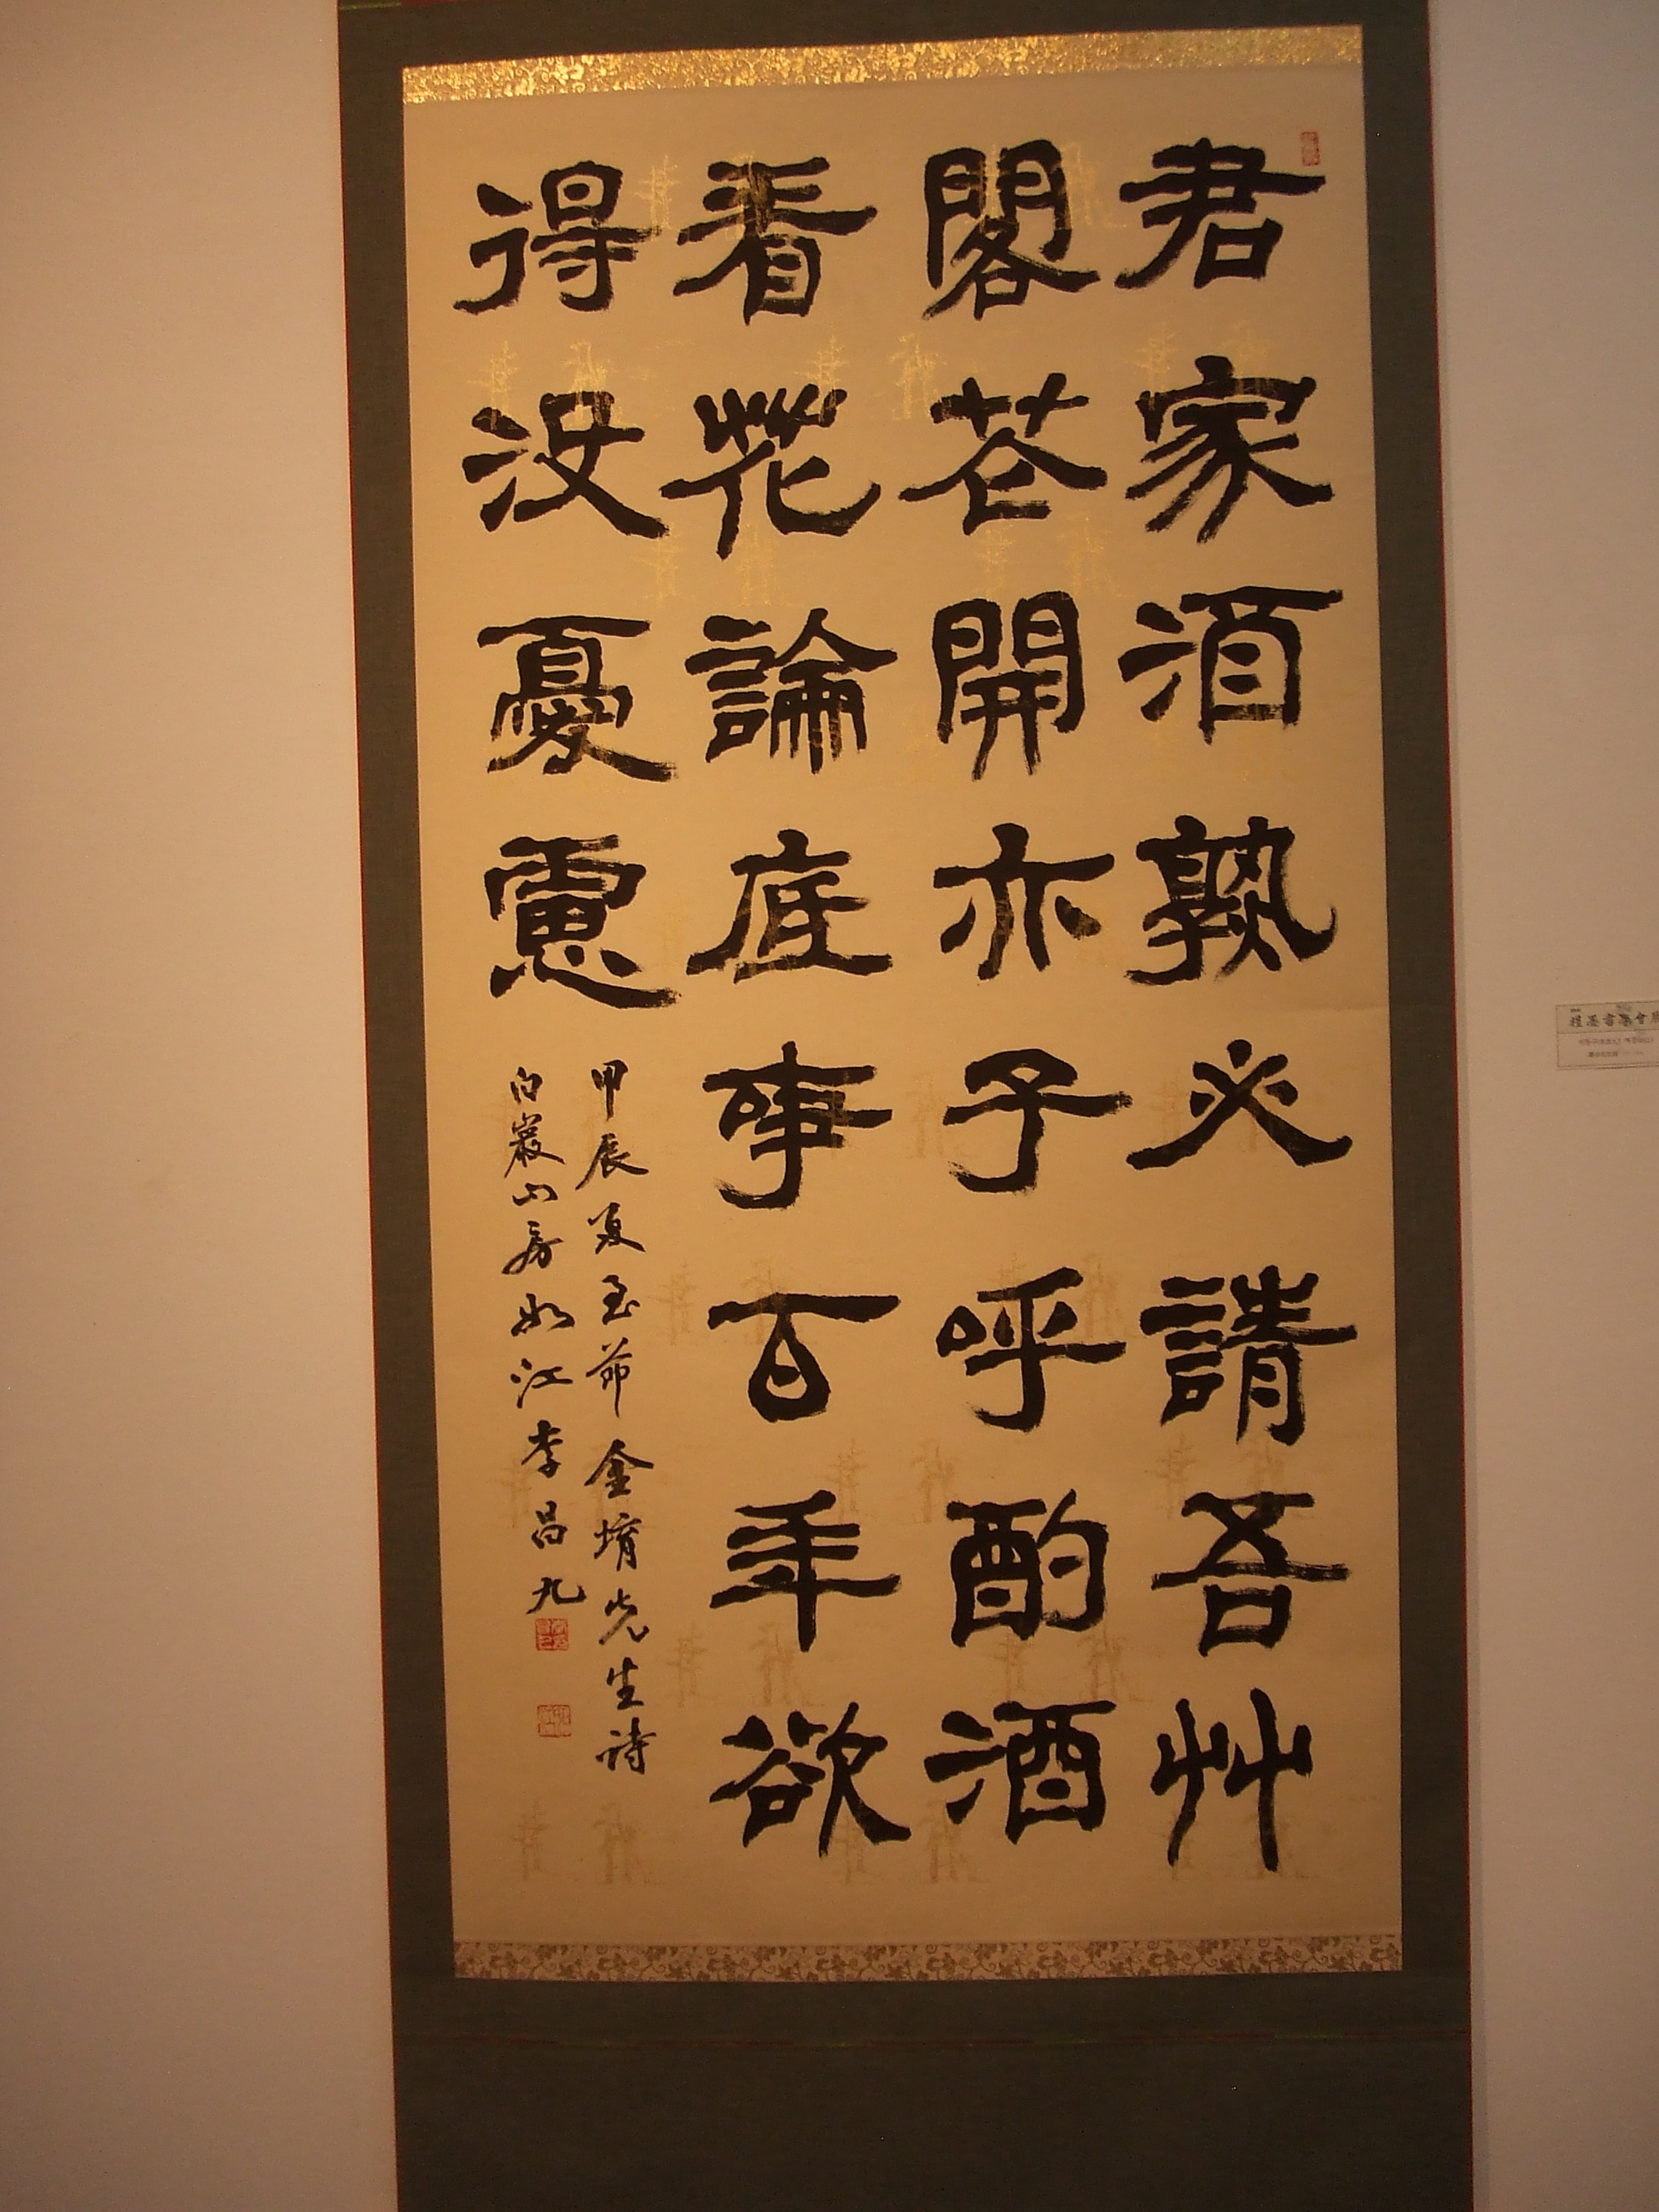 君家酒熟必請吾艸
閣芲開亦予呼酌酒
看花論底事百年欲
得没憂慮
甲辰夏至節 金堉先生詩
白巖山房 如江李昌九